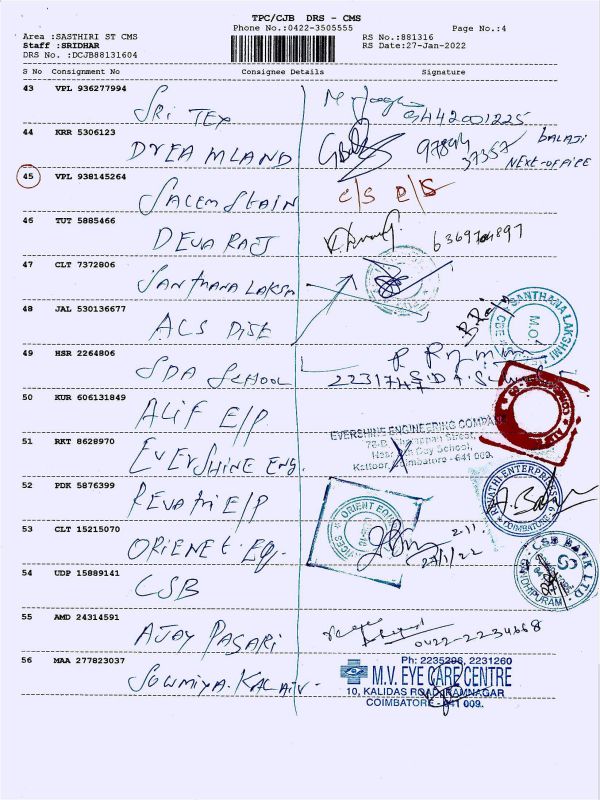 TPC/CJB DRS - CMS
Phone No.:0422-3505555
Page No.:4
Area :SASTHIRI ST CMS
RS No.:881316
Staff :SRIDHAR
RS Date:27-Jan-2022
DRS No. :DCJB88131604
S No Consignment No Consignee Details Signature
43 VPL 936277994
SRI TEX
9442001225
44 KRR 5306123
DREAMLAND
97894 37357
BALAJI
NEXT-OFFICE
45 VPL 938145264
SALEM STAIN
C/S
46 TUT 5885466
DEVA RAJ
47 CLT 7372806
SANTHANA LAKSM
SANTHANA LAKSHMI
M.O.
48 JAL 530136677
ACS DISE
49 HSR 2264806
SDA SCHOOL
2231747 S.D.A.
50 KUR 606131849
ALIF E/P
51 RKT 8628970
EVERSHINE ENG.
EVERSHINE ENGINEERING COMPA
Kattoor, Coimbatore - 641 009.
52 PDK 5876399
REVATHI E/P
REVATHI ENTERPRISES
COIMBATORE-
53 CLT 15215070
ORIENET EQ.
ORIENT EQU
27/1/22
54 UDP 15889141
CSB
CSB BANK LTD.
GANDHIPURAM
55 AMD 24314591
AJAY PASARI
0422-2234668
56 MAA 277823037
SOWMIYA.KALAIV.
Ph: 2235286, 2231260
M.V. EYE CARE CENTRE
10, KALIDAS ROAD, RAMNAGAR
COIMBATORE - 641 009.